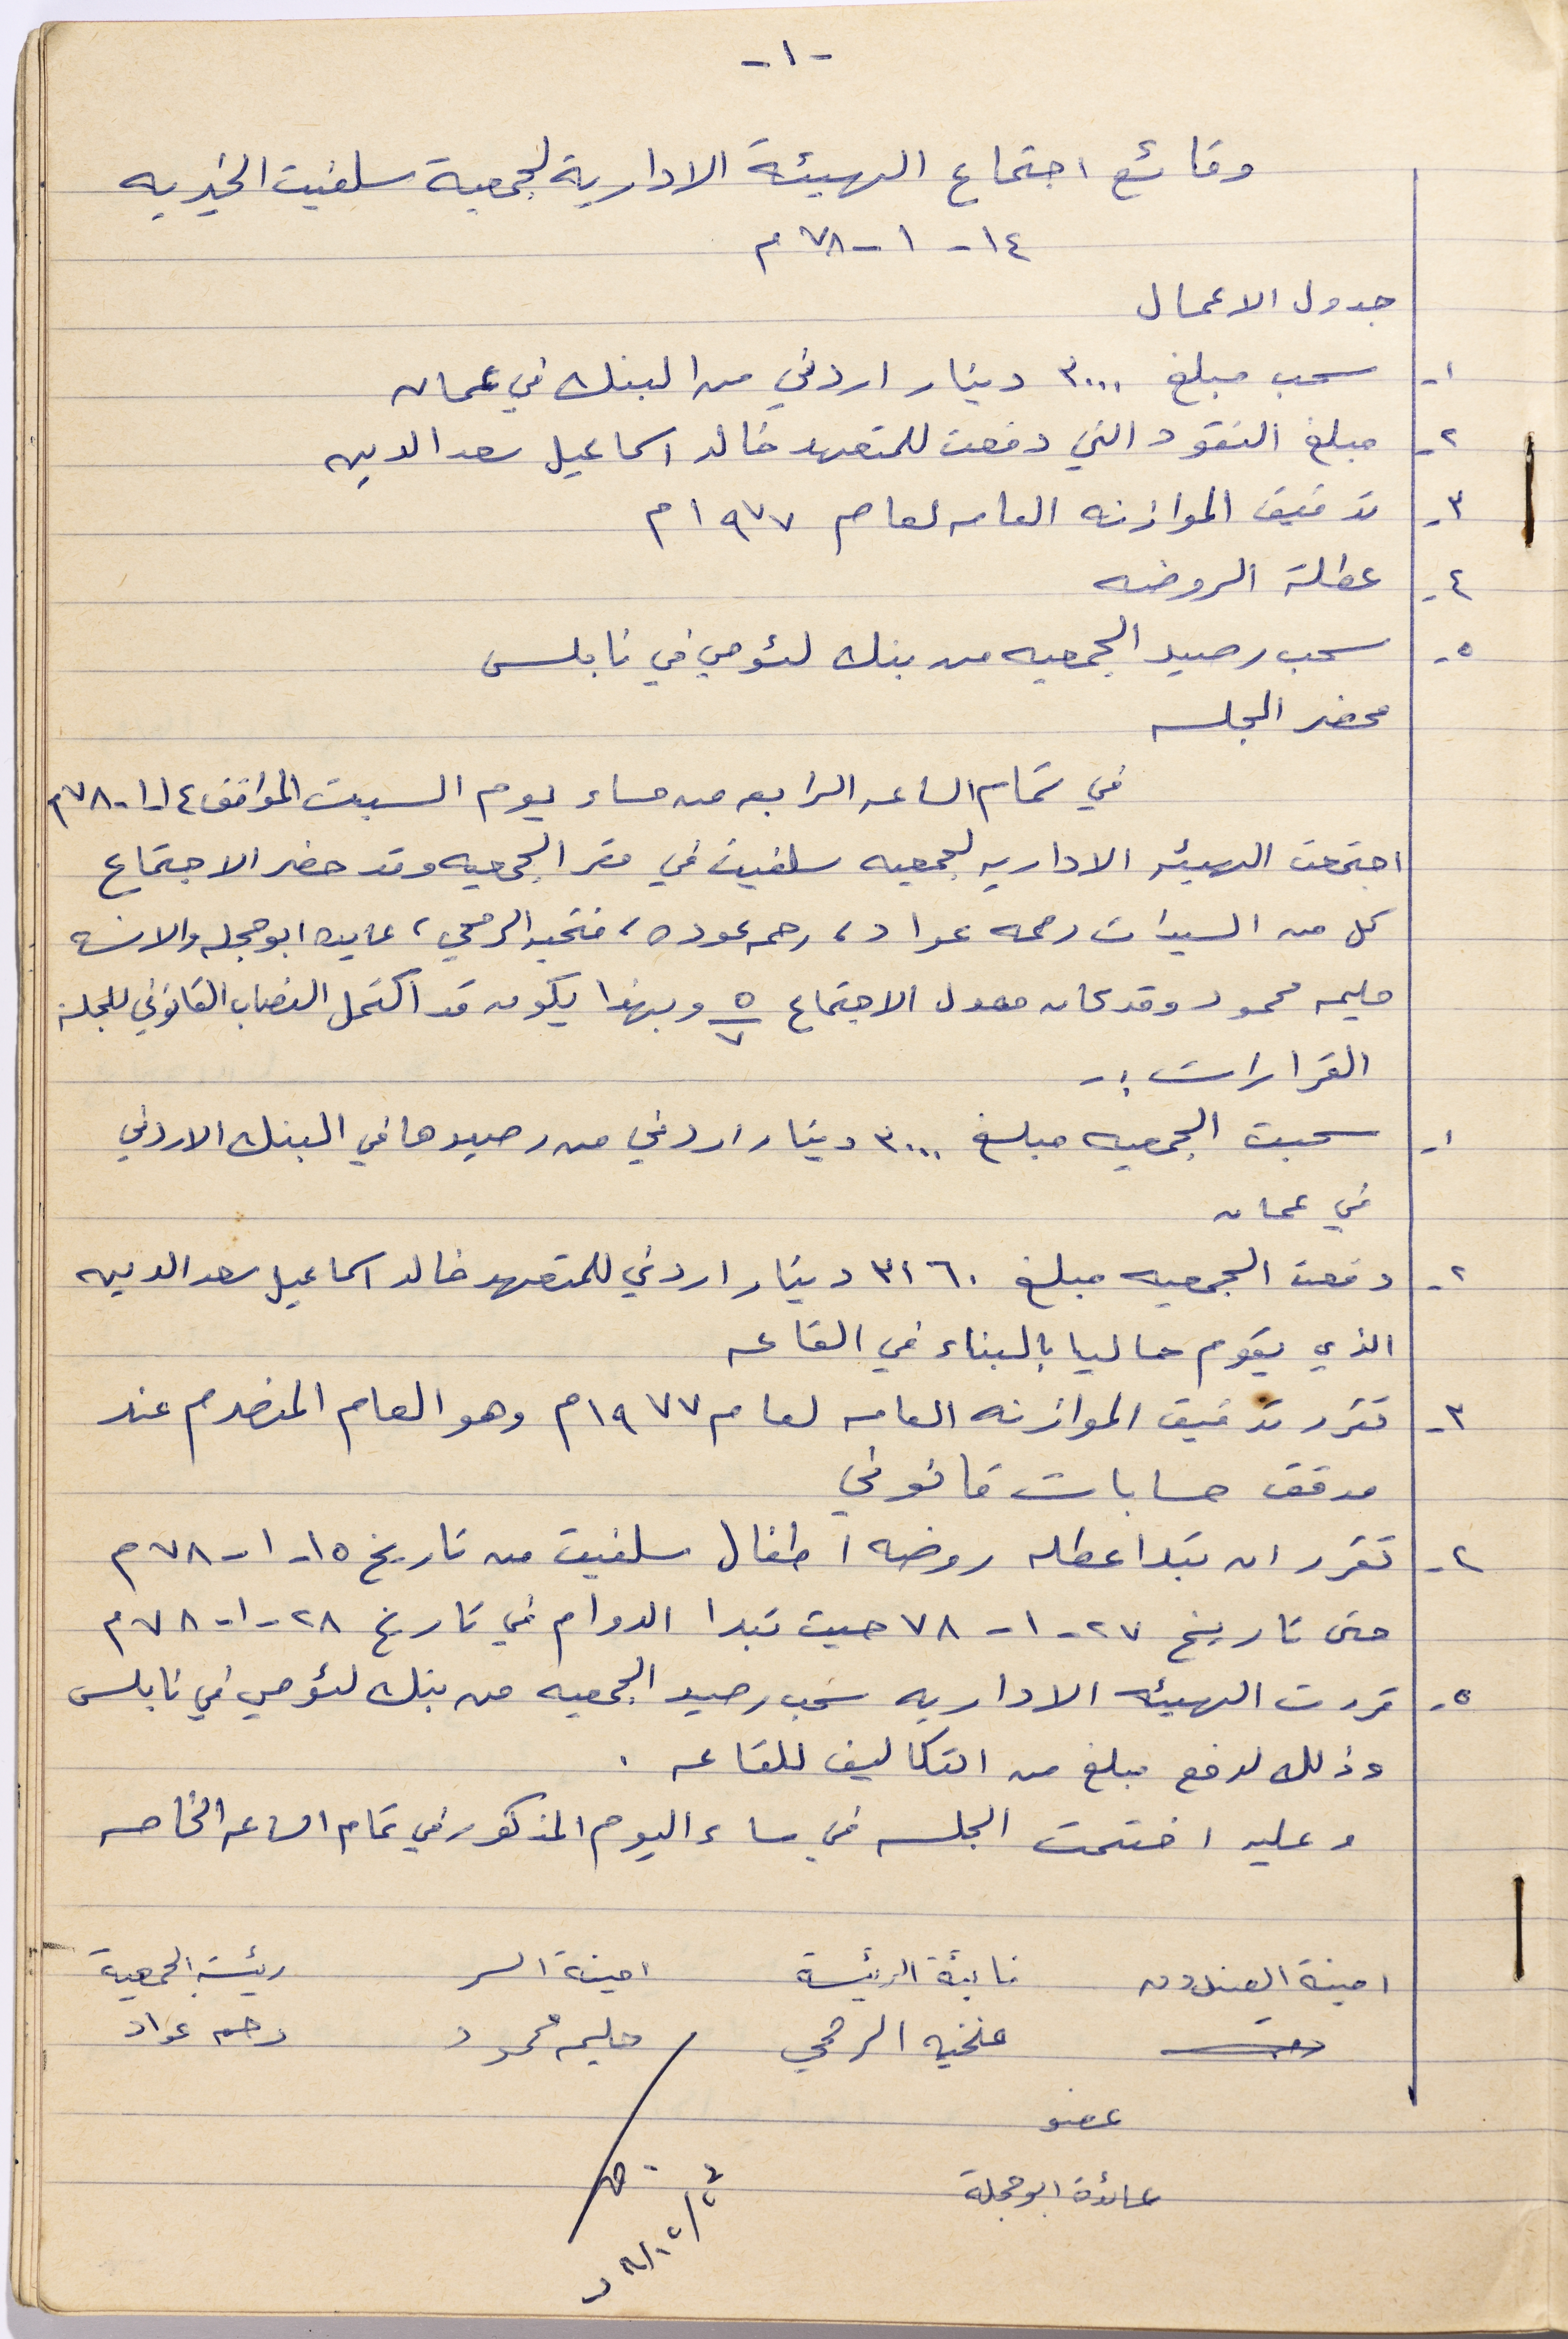 -١-
وقائع اجتماع الهيئة الادارية لجمعية سلفيت الخيريه
١٤-١-٧٨م
جدول الاعمال
١- سحب مبلغ ٣٠٠٠ دينار اردني من البنك في عمان
٢- مبلغ النقود التي دفعت للمتعهد خالد اسماعيل سعد الدين
٣- تدقيق الموازنه العامه لعام ١٩٧٧م
٤- عطلة الروضه
٥- سحب رصيد الجمعيه من بنك لئومي في نابلس
محضر الجلسه
في تمام الساعه الرابعه من مساء يوم السبت الموافق ١٤-١-٧٨م
اجتمعت الهيئه الاداريه لجمعيه سلفيت في مقر الجمعيه وقد حضر الاجتماع
كل من السيدات رحمه عواد، رحمه عوده، فتحيه الرمحي، عايده ابو حجله والانسه
حليمه محمود وقد كان معدل الاجتماع ٥/٧ وبهذا يكون قد اكتمل النصاب القانوني للجلسة
القرارات :-
١- سحبت الجمعيه مبلغ ٣٠٠٠ دينار اردني من رصيدها في البنك الاردني
في عمان
٢- دفعت الجمعيه مبلغ ٣١٦٠ دينار اردني للمتعهد خالد اسماعيل سعد الدين
الذي يقوم حاليا بالبناء في القاعه
٣- تقرر تدقيق الموازنه العامه لعام ١٩٧٧م وهو العام المنصرم عند
مدقق حسابات قانوني
٤- تقرر ان تبدا عطله روضه اطفال سلفيت من تاريخ ١٥-١-٧٨م
حتى تاريخ ٢٧-١-٧٨ حيث تبدا الدوام في تاريخ ٢٨-١-٧٨م
٥- قررت الهيئه الاداريه سحب رصيد الجمعيه من بنك لئومي في نابلس
وذلك لدفع مبلغ من التكاليف للقاعه .
وعليه اختتمت الجلسه في مساء اليوم المذكور في تمام الساعه الخامسه
امينة الصندوق نائبة الرئيسة امينة السر رئيسة الجمعية
فتحيه الرمحي حليمه محمود رحمه عواد
عضو
عائدة ابو حجلة